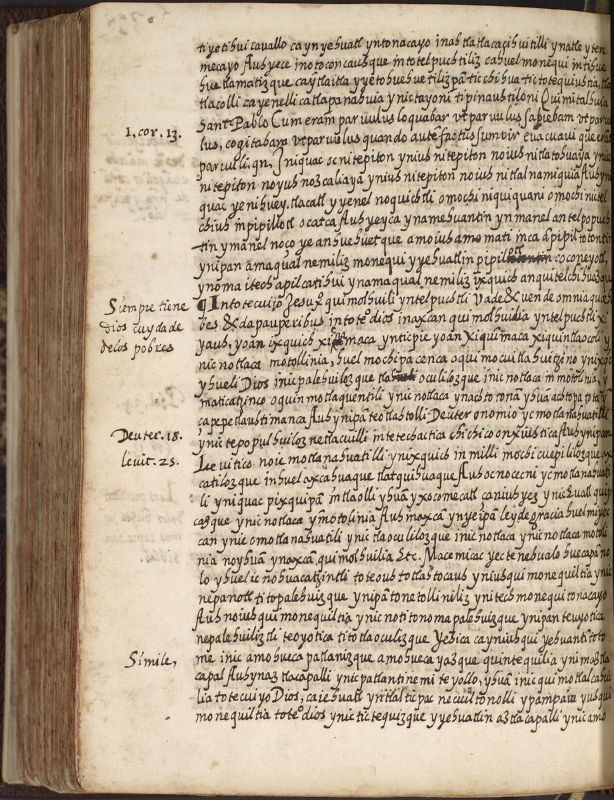 tiyetihui cavallo ca yn yehuatl yn tonacayo in ah tlatlacacihuitilli yn atle y ten
mecayo Auh yece in otocon cauhque in totelpuchtiliz ca huel monequi in tihue
hue tlamatizque
tlacolli ca yenelli catlapanahuia ynic tayoni tipinauhtiloni Quimitalhuia
Sant Pablo Cum eram paruulus loquabar vt paruulus sapiebam vt paruu
1. cor. 13.
lus, cogitabam vt paruulus quando aute factus sum vir evacuavi que erāt
paruuli. qn. In iquac oc nitepiton yn iuh nitepiton no iuh nitlatohuaya yn iuh
nitepiton noyuh nozcaliaya yn iuh nitepiton no iuh nitlalnamiquia Auh yn i
quac ye nihuey tlacatl y yenel noquichtli o mochi niquiquani o mochi nictel
chiuh in pipillotl ocatca Auh yeyca yn amehuantin yn manel antelpopuch
tin yn manel noço ye anhuehuetque amo iuh
ynipan amaqual nemiliz monequi y yehuatl in pipil cocone yotl,
yn oma itech apilcatihui yn amaqual nemiliz ixquich anquitelchihuazque
Siempre tiene
dios cuydado
delos pobres
¶ In totecuiyo Jesu xo quimolhuili yn telpuchtli Vade & vende omnia que ha
bes. & da pauperibus in toteo dios in axcan quimolhuilia yn telpuchtli xi
yauh, yoan ixquich maca ynticpie yoan xiquimaca xiquintlaocoli y
nicnotlaca motollinia, huel mochipa cenca oquimocuitlahuitzino yn ixqch
yhueli Dios inic palehuilozque oculilozque inic notlaca in motolinia, y
maticatzinco oquinmotlaquentili ynicnotlaca ynachto tonā yhuā achto
Deuter. 18.
Auh ynipā teotlahtolli Deuteronomio yc motlanahuatilli
ynic tepopulhuiloz netlacuilli in tetechcatica chichicoonxiuhtica Auh ynipan
Levit. 25.
Levitico no ic motlanahuatilli yn ixquich in milli mochi cuepililozque
catilozque in huel axcahuaque tlatquihuaque Auh oc no ceccni yc motlanahuati
li yn iquac pixquipā in tlaolli yhuā yxocomecatl
yn icnotlaca ymotolinia Auh in axcā ynyeipā ley de gracia huel miyec
can ynic omotlanahuatili ynic tlaoculilozque inic notlaca ynic notlaca motoli
nia noyhuā yn axcā quimolhuilia &c. Macemicac yectenehualo huecapano
lo yhuel icnohuacatzintli toteouh totlahtocauh yn iuhqui monequiltia ynic
nepanotl titopalehuizque ynipā tonetolliniliz ynitech monequi tonacayo
Auh noiuhqui monequiltia ynic no titonomapalehuizque ynipan teuyotica
nepalehuiliztli teoyotica titotlaoculizque Yehica ca yn iuhqui yehuantin toto
Simile,
me inic amo hueca patlanizque amo hueca yazque quintequilia yn imaztla
capal Auh yn az tlacapalli ynic patlantinemi teyollo, yhuā inic quimotlalcahui
lia totecuiyo Dios, ca iehuatl yn tlalticpac necuiltonolli ypampa in yuhqui
monequiltia toteo dios ynic tictequizque yyehuatl in aztlacapalli ynic amo